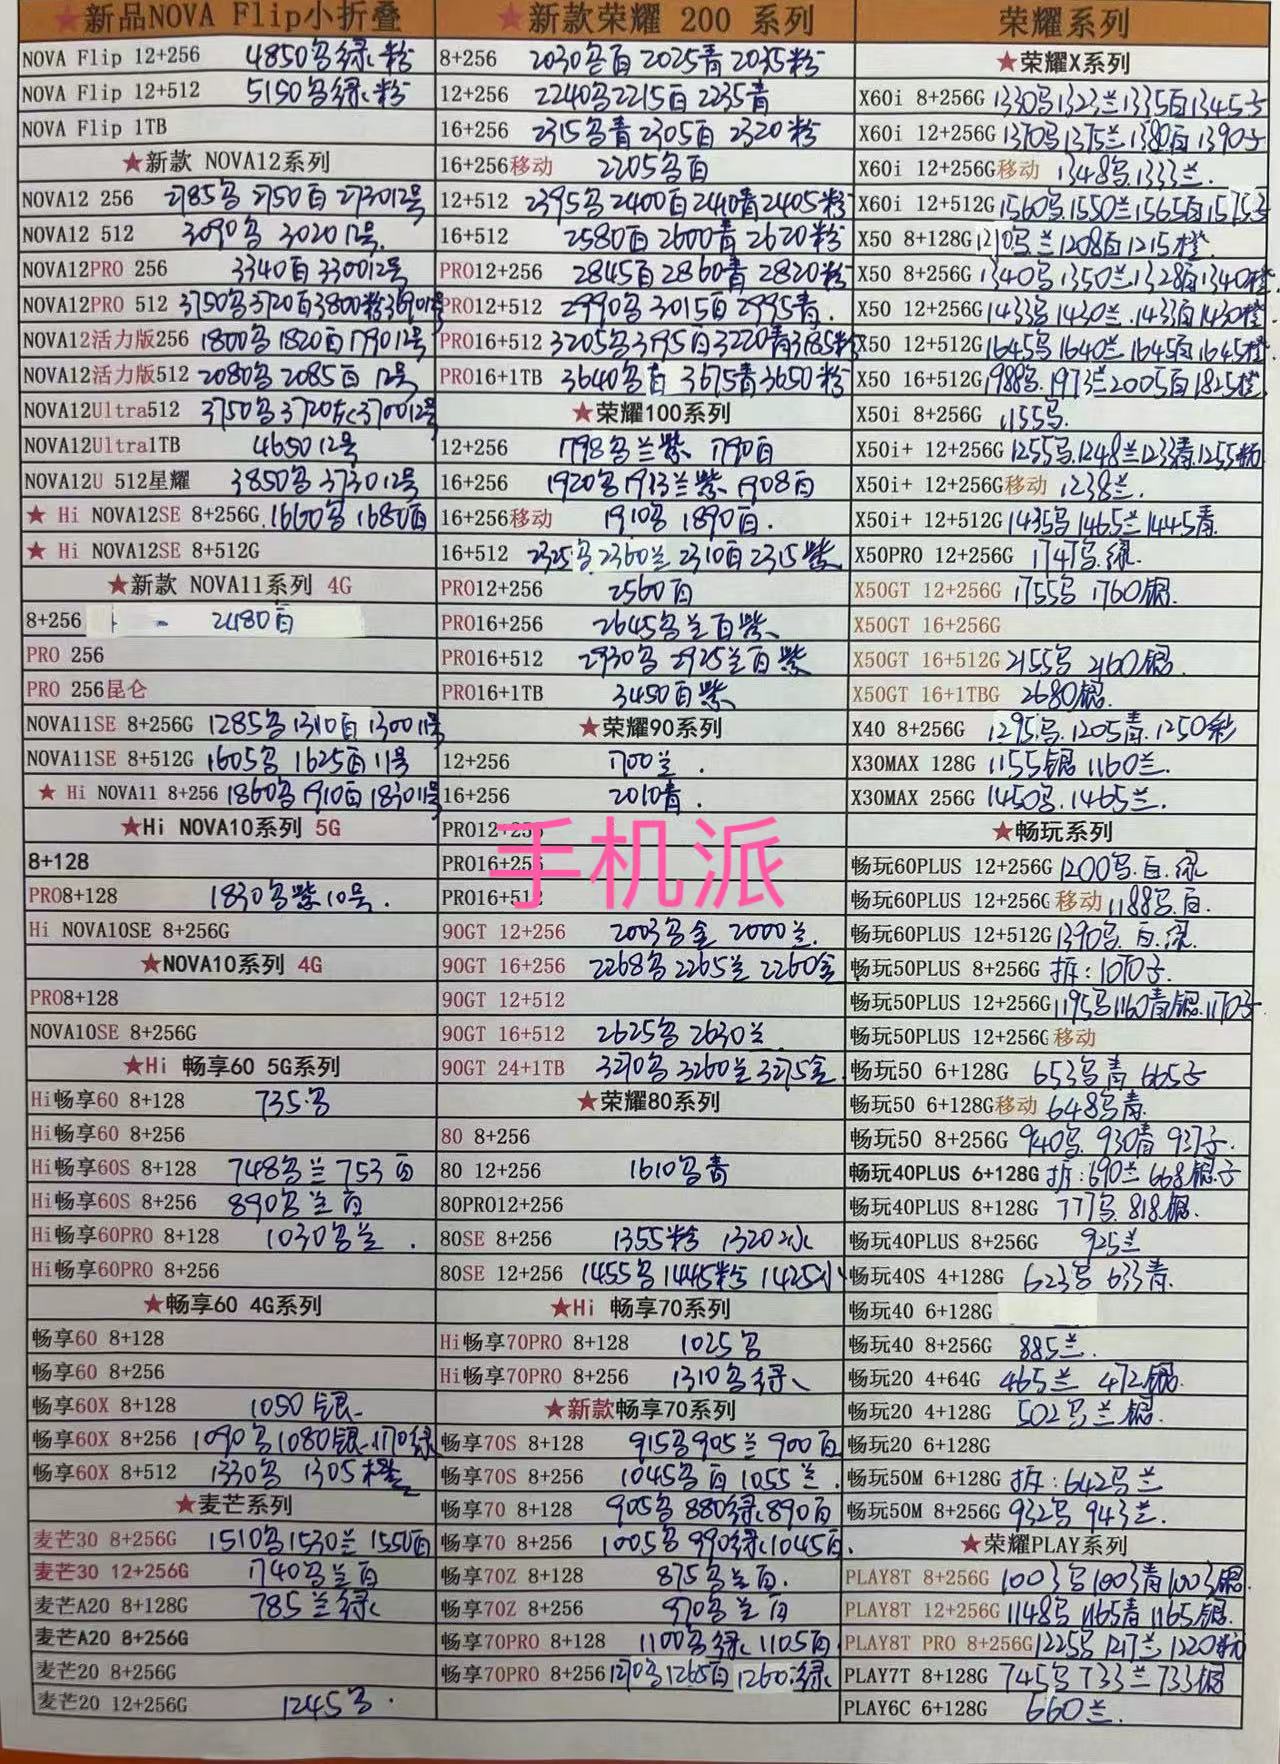 ★新品NOVA Flip小折叠
NOVA Flip 12+256 4850名绿粉
NOVA Flip 12+512 5150名绿粉
NOVA Flip 1TB
★新款 NOVA12系列
NOVA12 256 2785名 2750百 273012号
NOVA12 512 3090名 302012号
NOVA12PRO 256 3340百 330012号
NOVA12PRO 512 3750名3720百3800粉369012号
NOVA12活力版256 1800名 1820百 179012号
NOVA12活力版512 2080名 2085百 12号
NOVA12Ultra512 3750名3720灰370012号
NOVA12Ultra1TB 465012号
NOVA12U 512星耀 3850名 373012号
★ Hi NOVA12SE 8+256G 1660名 1680百
★ Hi NOVA12SE 8+512G
★新款 NOVA11系列 4G
8+256 2480百
PRO 256
PRO 256昆仑
NOVA11SE 8+256G 1285名1310百130011号
NOVA11SE 8+512G 1605名 1625百 11号
★ Hi NOVA11 8+256 1860名1910百183011号
★Hi NOVA10系列 5G
8+128
PRO8+128 1830名紫10号.
Hi NOVA10SE 8+256G
★NOVA10系列 4G
PRO8+128
NOVA10SE 8+256G
★Hi 畅享60 5G系列
Hi畅享60 8+128 735名
Hi畅享60 8+256
Hi畅享60S 8+128 748名兰753百
Hi畅享60S 8+256 890名兰百
Hi畅享60PRO 8+128 1030名兰.
Hi畅享60PRO 8+256
★畅享60 4G系列
畅享60 8+128
畅享60 8+256
畅享60X 8+128 1050银
畅享60X 8+256 1090名1080银1170绿
畅享60X 8+512 1330名 1305橙
★麦芒系列
麦芒30 8+256G 1510名1530兰1550百
麦芒30 12+256G 1740名兰百
麦芒A20 8+128G 785兰绿
麦芒A20 8+256G
麦芒20 8+256G
麦芒20 12+256G 1245名.
★新款荣耀 200 系列
8+256 2030名百2025青2035粉
12+256 2240名2215百2235青
16+256 2315名青2305百2320粉
16+256移动 2205名百
12+512 2395名2400百2410青2405粉
16+512 2580百2600青2620粉
PRO12+256 2845百2860青2820粉
PRO12+512 2990名3015百2995青.
PRO16+512 3205名3195百3220青3185粉
PRO16+1TB 3640名百 3675青3650粉
★荣耀100系列
12+256 1798名兰紫 1790百
16+256 1920名1913兰紫1908百
16+256移动 1910名1890百.
16+512 2325名2360兰2310百2315紫
PRO12+256 2560百
PRO16+256 2645名兰百紫
PRO16+512 2930名2925兰百紫
PRO16+1TB 3450百紫
★荣耀90系列
12+256 1700兰.
16+256 2010青.
PRO12+256
PRO16+256
PRO16+512
90GT 12+256 2003名金 2000兰.
90GT 16+256 2268名2265兰2260金
90GT 12+512
90GT 16+512 2625名2630兰
90GT 24+1TB 3270名3260兰3275金
★荣耀80系列
80 8+256
80 12+256 1610名青
80PRO12+256
80SE 8+256 1355粉 1320冰
80SE 12+256 1455名1445粉1425冰
★Hi 畅享70系列
Hi畅享70PRO 8+128 1025名
Hi畅享70PRO 8+256 1310名绿
★新款畅享70系列
畅享70S 8+128 915名905兰900百
畅享70S 8+256 1045名百1055兰.
畅享70 8+128 905名880绿890百
畅享70 8+256 1005名990绿1045百.
畅享70Z 8+128 875名兰百.
畅享70Z 8+256 970名兰百
畅享70PRO 8+128 1100名绿1105百
畅享70PRO 8+256 1270名1265百1260绿
荣耀系列
★荣耀X系列
X60i 8+256G 1330名1323兰1335百1345子
X60i 12+256G 1370名1375兰1380百1390子
X60i 12+256G移动 1348名1333兰.
X60i 12+512G 1560名1550兰1565百1575子
X50 8+128G 1210名兰1208百1215橙
X50 8+256G 1340名1350兰1328百1340橙
X50 12+256G 1433名1430兰1433百1430橙
X50 12+512G 1645名1640兰1645百1645橙
X50 16+512G 1988名1973兰2005百1825橙
X50i 8+256G 1155名
X50i+ 12+256G 1255名1248兰1233青1255粉
X50i+ 12+256G移动 1238兰.
X50i+ 12+512G 1435名1465兰1445青
X50PRO 12+256G 1747名绿.
X50GT 12+256G 1755名1760银.
X50GT 16+256G
X50GT 16+512G 2155名2160银
X50GT 16+1TBG 2680银.
X40 8+256G 1295名1205青1250彩
X30MAX 128G 1155银1160兰.
X30MAX 256G 1450名1465兰.
★畅玩系列
畅玩60PLUS 12+256G 1200名百.绿
畅玩60PLUS 12+256G 移动 1188名.百.
畅玩60PLUS 12+512G 1390名.百.绿
畅玩50PLUS 8+256G 拆:1070子
畅玩50PLUS 12+256G 1195名1160青银1170子
畅玩50PLUS 12+256G 移动
畅玩50 6+128G 653名青 665子
畅玩50 6+128G移动 648名青.
畅玩50 8+256G 940名.930青 937子.
畅玩40PLUS 6+128G 拆:690兰668银子
畅玩40PLUS 8+128G 777名.818银.
畅玩40PLUS 8+256G 925兰
畅玩40S 4+128G 623名 633青.
畅玩40 6+128G
畅玩40 8+256G 885兰.
畅玩20 4+64G 465兰 472银.
畅玩20 4+128G 502名兰银.
畅玩20 6+128G
畅玩50M 6+128G 拆:642名兰
畅玩50M 8+256G 932名 943兰.
★荣耀PLAY系列
PLAY8T 8+256G 1003名1003青1003银
PLAY8T 12+256G 1148名1165青1165银.
PLAY8T PRO 8+256G 1225名1217兰1220粉
PLAY7T 8+128G 745名733兰733银
PLAY6C 6+128G 660兰.
手机派